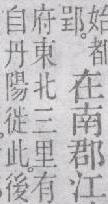 始都
郢。
在南郡江
府東北三里有
自丹陽徙此。後